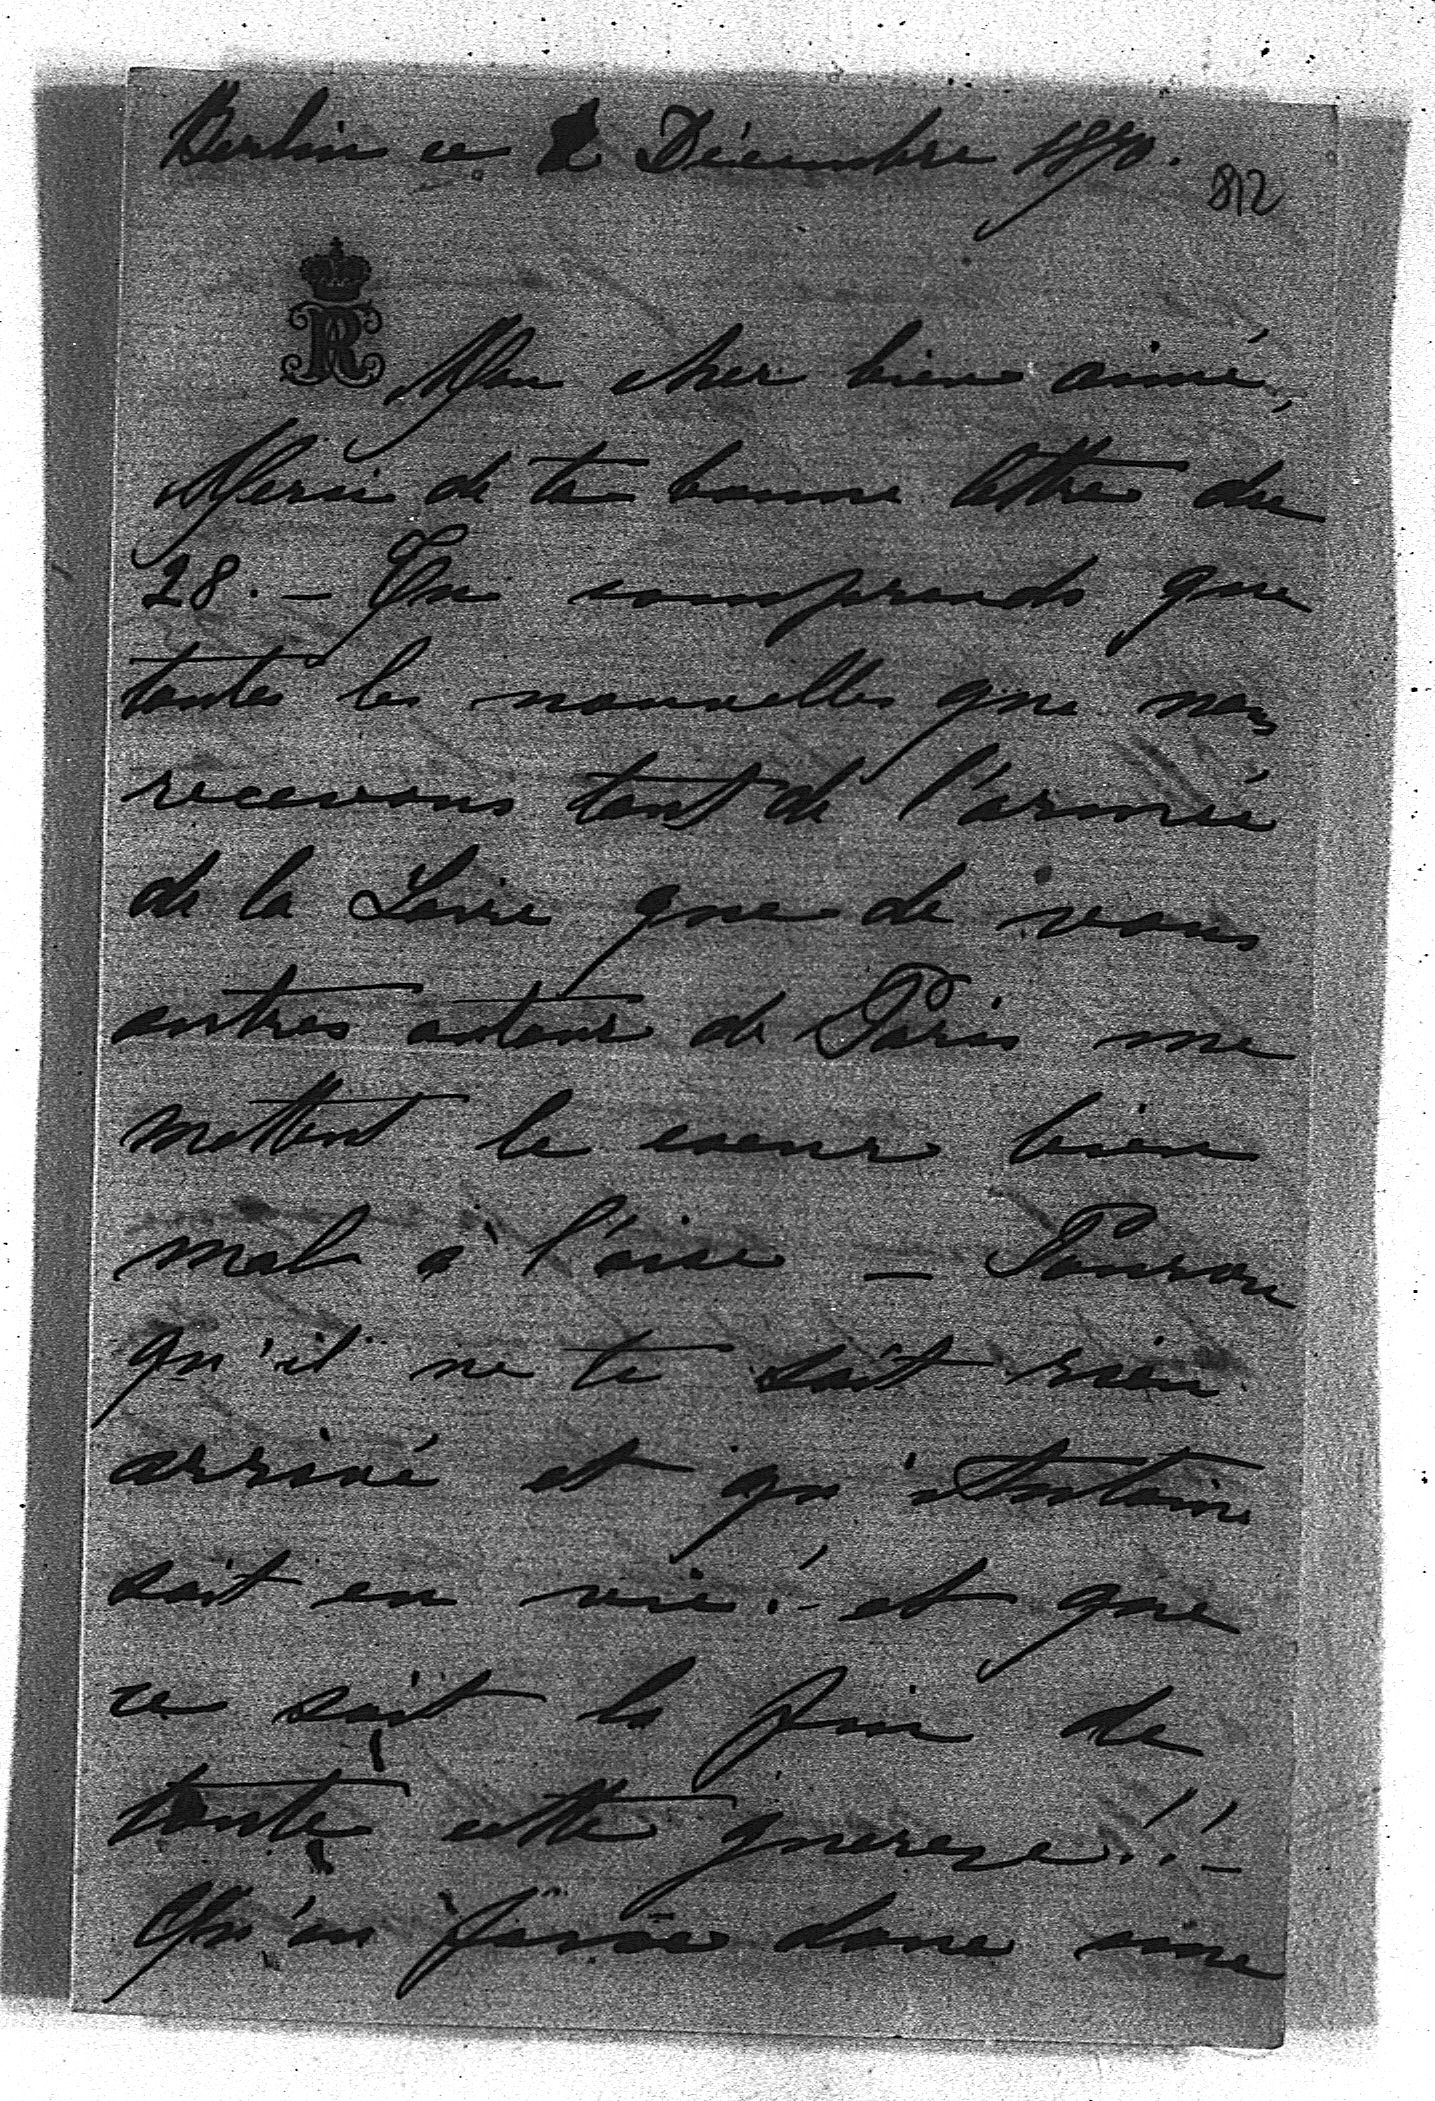 Berlin ce 2 Décembre 1870.
812
Mon cher bien aimé,
Merci de ta bonne lettre du
28. – Tu comprends que
toutes les nouvelles que nous
recevons tant de l'armée
de la Loire que de vous
autres autour de Paris me
mettent le coeur bien
mal à l'aise – Pourvu
qu'il ne te soit rien
arrivé et qu'Antoine
soit en vie! – et que
ce soit la fin de
toute cette guerre!! –
Qu'on fasse donc une